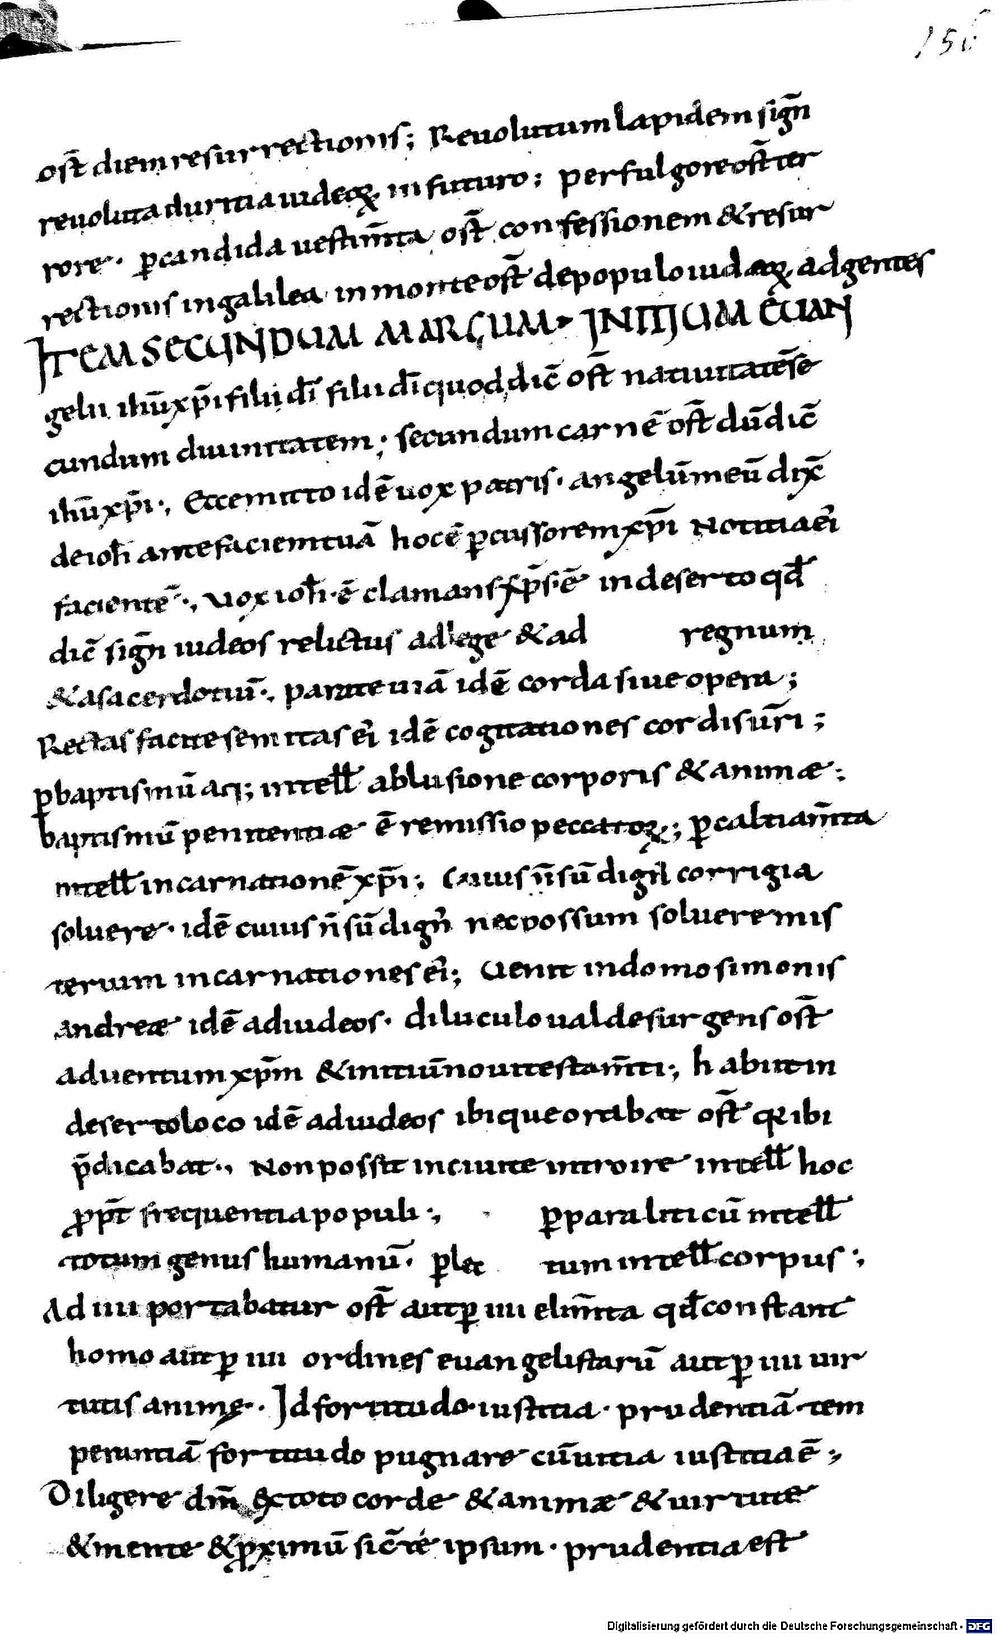 156
ost̄ diem resurrectionis; Reuolutum lapidem sign̄
reuoluta duritia iudeoꝝ in futuro; per fulgore ost̄ ter
rore· ꝑ candida uestim̄ta ost̄ confessionem & resur
rectionis in galilea in monte ost̄ de populo iudaeoꝝ ad gentes
ITEM SECUNDUM MARCUM· INITIUM EUAN
gelii ihū xp̄i filii dī filii dī quod dic̄ ost̄ natiuitatē se
cundum diuinitatem; secundum carnē ost̄ dū dic̄
ihū xp̄i·, Ecce mitto idē uox patris· angelū meū dix̄
de ioh̄ ante faciem tuā hoc ē p̄cussorem xp̄i notitia ei
facientē·, uox ioh̄·ē clamans xp̄s ē in deserto qđ
dic̄ sign̄ iudeos relictus ad lege & ad regnum
& a sacerdotiū·, parate uiā idē corda siue opera;
Rectas facite semitas ei idē cogitationes cordis uri;
ꝑ baptismū aq; intell̄ ablusione corporis & animæ;
baptismū penitentiæ ē remissio peccatoꝝ; ꝑ caltiam̄ta
intell̄ incarnationē xp̄i; Cuius n̄ sū dign̄ corrigia
soluere· idē cuius n̄ sū dign̄ nec possum soluere mis
terium incarnationes ei; Uenit in domo simonis
andreæ idē ad iudeos· diluculo ualde surgens ost̄
aduentum xp̄m & initiū noui testam̄ti; habiit in
deserto loco idē ad iudeos ibique orabat ost̄ qr ibi
p̄dicabat·, Non possit in ciuite introire intell̄ hoc
ꝓpt̄ frequentia populi·, ꝑ paraliticū intell̄
totum genus humanū· ꝑ lec tum intell̄ corpus;
A d iiii portabatur ost̄ aut ꝑ iiii elim̄ta qđ constant
homo aut ꝑ iiii ordines euangelistarū aut ꝑ iiii uir
tutis animę· Id fortitudo· iustitia· prudentiā· tem
perantiā fortitudo pugnare cū uitia iustitia ē;
Diligere dm̄ ex toto corde & animæ & uirtute
& mente & ꝓximū sic̄ té ipsum· prudentia est
Digitalisierung gefördert durch die Deutsche Forschungsgemeinschaft - DFG